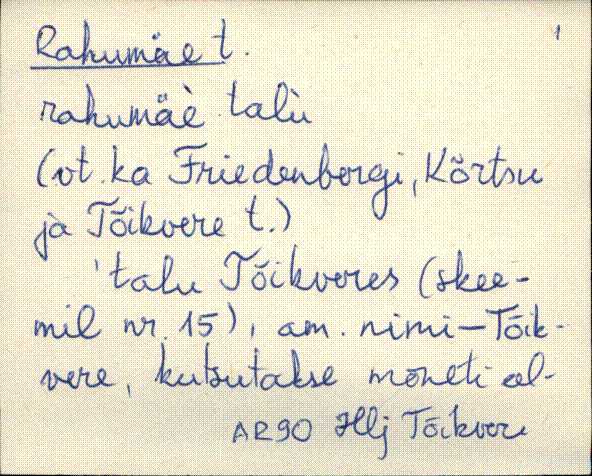 Rahumäe t. 1
rahumäè talù
(vt. ka Friedenbergi, Kõrtsu
jà Tõikvere t.)
'talu Tõikveres (skee-
mil nr. 15), am. nimi—Tõik-
vere, kutsutakse mõneti al-
AR90 Hlj Tõikvere